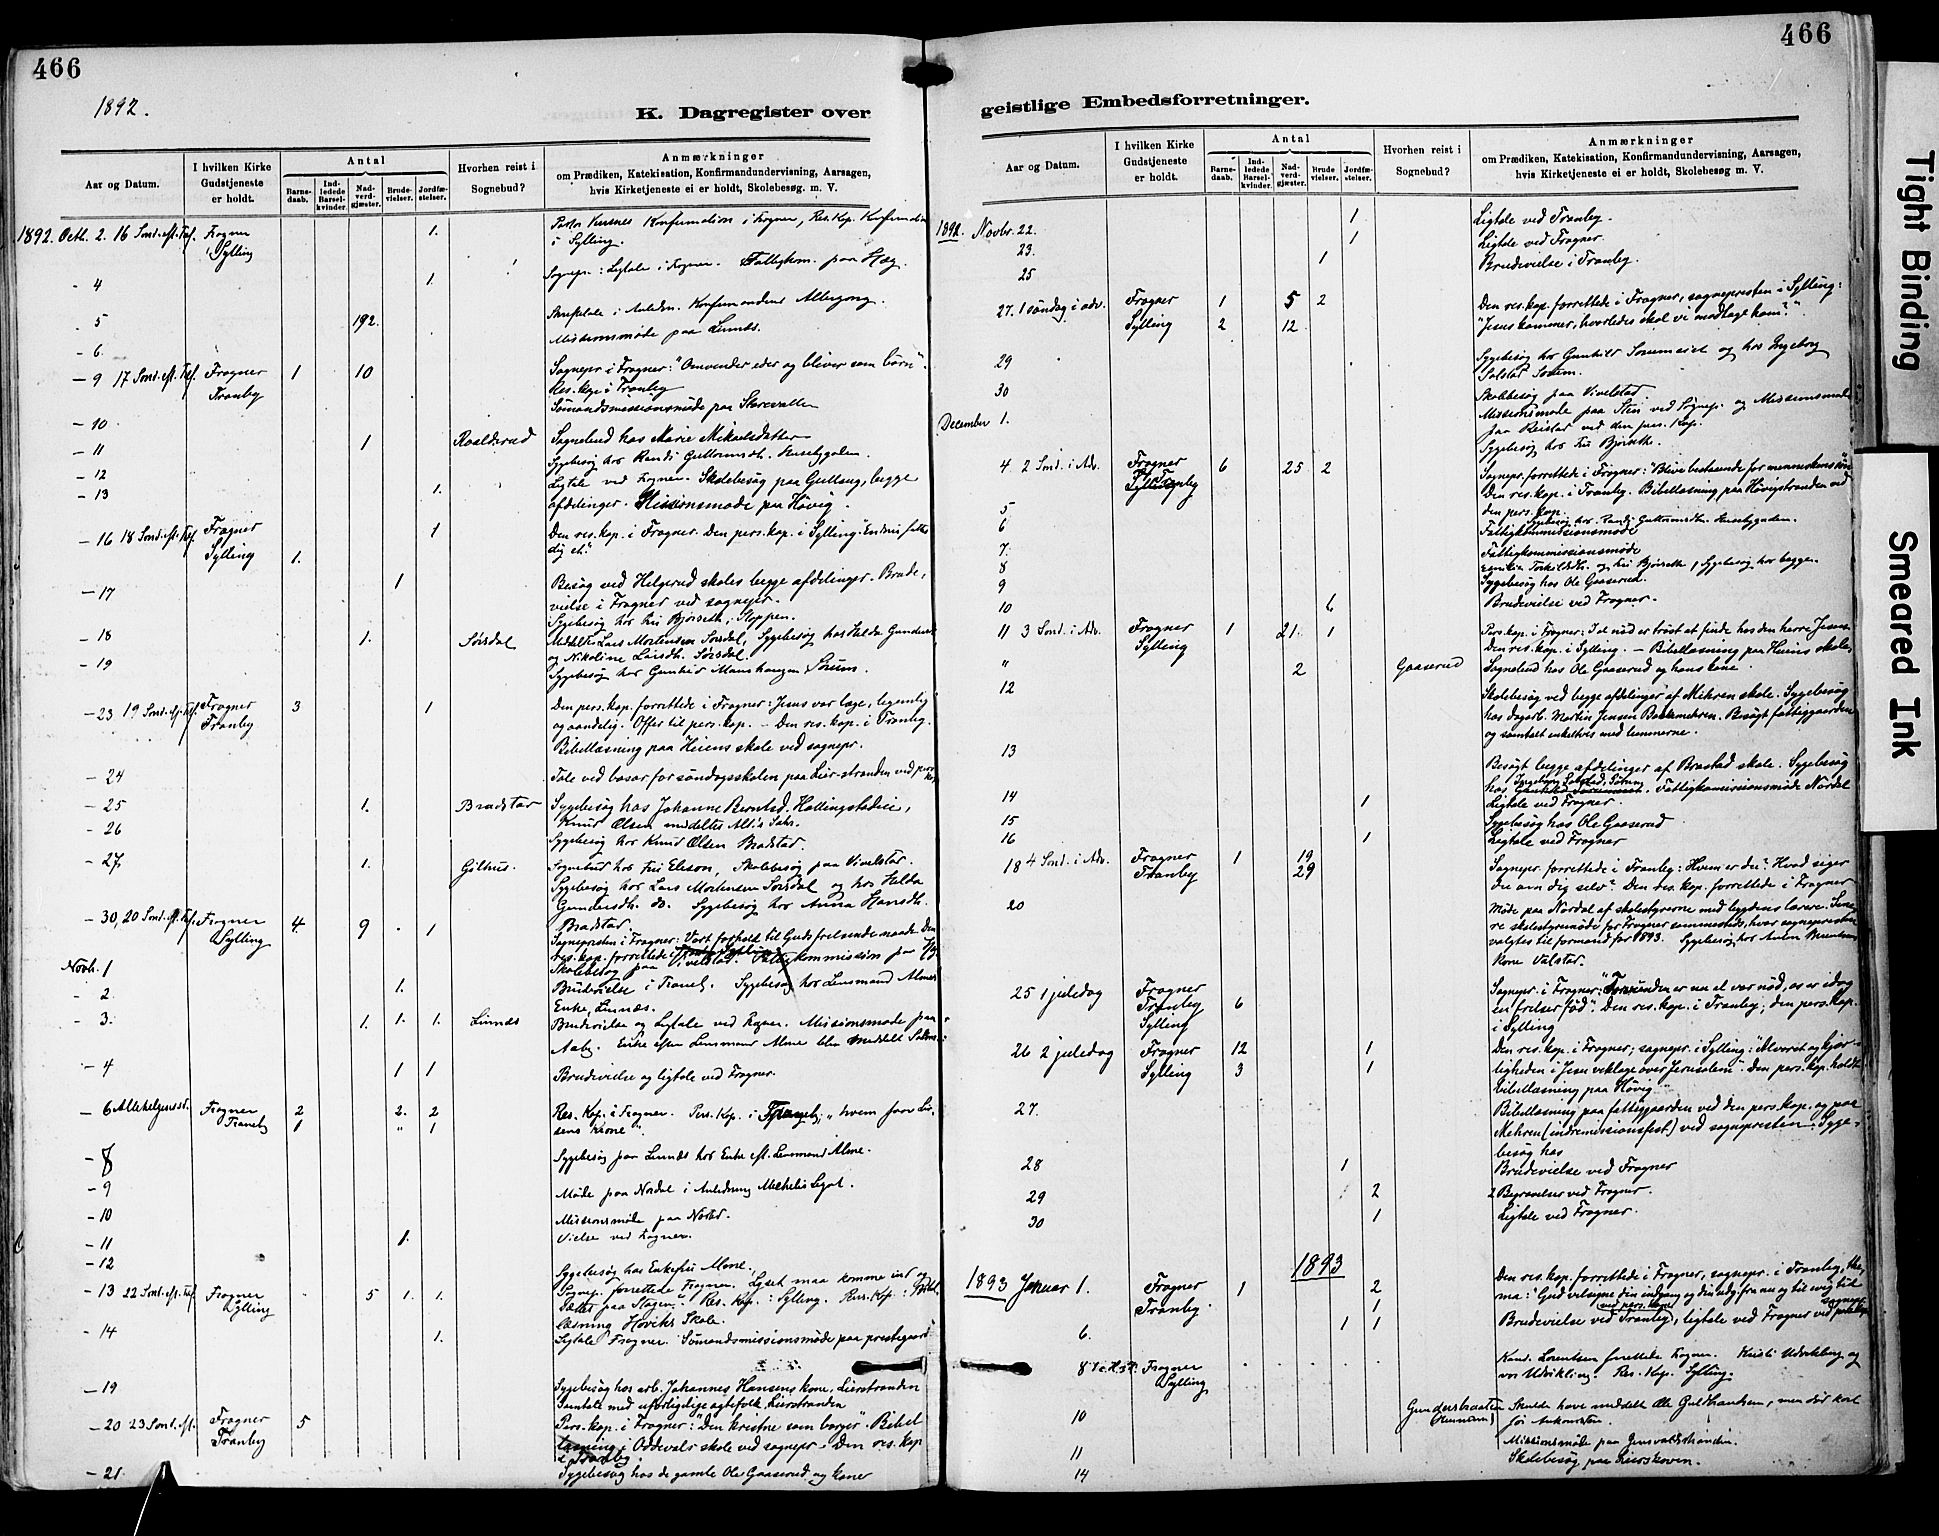 466
1892.
K. Dagregister over
Aar og Datum.
I hvilken Kirke Gudstjeneste er holdt.
Antal
Barne-daab.
Ind-ledede Barsel-kvinder.
Nad-verd-gjæster.
Brude-vielser.
Jordfæ-stelser.
Hvorhen reist i Sognebud?
Anmærkninger
om Prædiken, Katekisation, Konfirmandundervisning, Aarsagen,
hvis Kirketjeneste ei er holdt, Skolebesøg m. V.
1892. Octb. 2. 16 Sond. eft. Tref. Frogner 1. Konfirmation i Frogner, Res. Kap. Konfirmation
Sylling i Sylling.
- 4 1. Sognepr: Ligtale i Frogner. Fattigkom. paa Hæg.
- 5 192. Konfirmandens Altergang.
- 6. Missionsmøde paa Linnæs.
- 9 17 Sond. eft. Tref. Frogner 1 10 Sognepr i Frogner: "Omvender eder og bliver som børn".
Tranby Res. kap. i Tranby
Sømandsmissionsmøde paa Storevallen
- 10
- 11 1 Roalderud Sognebud hos Marie Mikaelsdatter
Sygebesøg hos Randi Guttormsdh.
- 12 Ligtale ved Frogner. Skolebesøg paa Gullaug, begge
- 13 1. afdelinger. Missionsmøde paa Høvig.
- 16 18 Sond. eft. Tref. Frogner 1 Den res. kap. i Frogner. Den pers. kap. i Sylling: Endnu fattes
Sylling 1. dig et."
- 17 1 Besøg ved Helgerud skoles begge afdelinger. Brude,
vielse i Frogner ved sognepr.
- 18 1. Sørsdal Sygebesøg hos Bjørseth, Stoppen.
Lars Mortensen Sørsdal, Sygebesøg hos Helda Gunders
og Nikoline Larsdh. Sørsdal
- 19 Sygebesøg hos Gunhild Sørum.
- 23 19 Sond. eft. Tref. Frogner 3 1 Den pers. kap. forrettede i Frogner: Jesus vor læge, legemlig
Tranby og aandelig. Offer til pers. kap. - Den res. kap. i Tranby.
Bibellæsning paa Heiens skole ved sognepr.
- 24 Tale ved basar for søndagsskolen paa Lier-stranden ved pers kap.
- 25 1. Bradstar Sygebesøg hos Johanne Berntsd. Hallingstadeie,
- 26 Knud Olsen meddeltes Alt's Sakr.
Sygebesøg hos Knud Olsen Bradstar.
- 27. 1. Gilhus. Sognebud hos Skolebesøg paa Vivelstad.
Sygebesøg hos Lars Mortensen Sørsdal og hos Helda
Gundersdh. do. Sygebesøg hos Anna Hansdh.
- 30, 20 Sond. eft. Tref. Frogner 4. 9 . 1 Bradstar.
Sylling Sognepresten i Frogner: Vort forhold til Guds frelsende naade. Den
res. kap. forrettede i
Novb. 1 Skolebesøg paa Vivelstad. Fattigkommission paa
- 2. 1. Brudevielse i Tranby. Sygebesøg hos Lensmand Almes
Enke, Linnæs.
- 3. 1. 1. 1. Linnæs Brudevielse og Ligtale ved Frogner. Missionsmøde paa
Enke efter Lensmand Alme blev meddelt
- 4 1 1 Brudevielse og ligtale ved Frogner.
- 6 Allehelgensst. Frogner 2 2. 2 Res. Kap. i Frogner. Pers. Kap. i Tranby;
Tranby 1 " 1
- 8 Sygebesøg paa Linnæs hos Enke eft. Lensmand Alme.
- 9 Møde paa Nordal i Anledning Legat.
- 10 Missionsmøde paa
- 11 1. Vielse ved Frogner.
- 12 Sygebesøg hos Enkefru Alme.
- 13 22 Sond. eft. Tref Frogner 5 1. 1. Sognepr. forrettede Frogner. Lyset maa komme ind og
Sylling Res. Kap. i Sylling. Pers. Kap: Bibel-
læsning Høviks Skole.
- 14 1. Ligtale Frogner. Sømandsmissionsmøde paa prestegaard
- 19 Sygebesøg hos arb. Johannes Hansens kone, Lierstranden
Samtalt med uforligelige ægtefolk, Lierstranden
- 20 23 Sond. eft. Frogner 5 Pers. kap. i Frogner: "Den kristne som borger". Bibel
Tranby læsning i Oddevals skole ved sognepr - Den res. kap
i Tranby.
- 21. Sygebesøg hos de gamle Ole Gaaserud og kone
466
geistlige Embedsforretninger.
Aar og Datum.
I hvilken Kirke Gudstjeneste er holdt.
Antal
Barne-daab.
Ind-ledede Barsel-kvinder.
Nad-verd-gjæster.
Brude vielser.
Jordfæ-stelser.
Hvorhen reist i Sognebud?
Anmærkninger
om Prædiken, Katekisation, Konfirmandundervisning, Aarsagen,
hvis Kirketjeneste ei er holdt, Skolebesøg m. V.
1892. Novbr. 22. 1 Ligtale ved Tranby.
23. 1 Ligtale ved Frogner.
25 1 Brudevielse i Tranby.
27. 1 søndag i adv. Frogner 1 5 2 Den res. kap. forrettede i Frogner, sognepresten i Sylling:
Sylling 2 12 "Jesus kommer, hvorledes skal vi modtage ham?"
29 Sygebesøg hos Gunhild og hos Ingeborg
Solstad Sørum.
30 Skolebesøg paa Vivelstad
December 1. Missionsmøde paa Stein ved Sognepr. og Missionsmøde
paa Reistad ved den pers. Kap.
Sygebesøg hos Bjørseth.
4. 2 Sond. i Adv. Frogner 6 25 2 Sognepr. forrettede i Frogner: "Blive bestaaende for menneskens søn"
Tranby Den res. kap. i Tranby. Bibellæsning paa Høvigstranden ved
5 den pers. kap.
6 Sygebesøg hos Randi Guttormsdh.
Fattigkommissionsmøde
7. Fattigkommissionsmøde
8 Bjørseth, Sygebesøg hos begge.
9 Sygebesøg hos Ole Gaaserud.
10 6 Brudevielse ved Frogner.
11 3 Sond. i Adv. Frogner 1 21. 1 Pers. kap. i Frogner: I al nød er trøst at finde hos den herre Jesus
Sylling Den res. kap. i Sylling. - Bibellæsning paa Heiens skole
" 2 Gaaserud Sognebud hos Ole Gaaserud og hans kone.
12 Skolebesøg ved begge afdelinger af Mehren skole. Sygebesøg
hos dagarb. Martin Jensen Bakkemehren. Besøgt fattiggaarden
og samtalt enkeltvis med lemmerne.
13 Besøgt begge afdelinger af Brastad skole. Sygebesøg
hos Ingeborg Solstad, Sørum. Fattigkomissionsmøde Nordal
14 1 Ligtale ved Frogner.
15 Sygebesøg hos Ole Gaaserud
16 1 Ligtale ved Frogner
18 4 Sond. i Adv. Frogner 1 19 Sognepr. forrettede i Tranby: Hvem er du? Hvad siger
Tranby 29 du om dig selv? Den res. kap. forrettede i Frogner
20 Møde paa Nordal af skolestyrerne med bygdens lærere. Sene-
re skolestyremøde for Frogner sammesteds, hvor sognepresten
valgtes til formand for 1893. Sygebesøg hos
kone Valstad.
25 1 juledag Frogner Sognepr. i Frogner: er nu al vor nød, os er idag
Tranby 6 en frelser fød". Den res. kap. i Tranby, den pers. kap.
Sylling i Sylling
26 2 juledag Frogner 12 1 Den res. kap. i Frogner; sognepr. i Sylling: "Alvoret og kjær-
Sylling 3 1 ligheden i Jesu veklage over Jerusalem". Den pers. kap. holdt
bibellæsning paa Høvig
27. Bibellæsning paa fattiggaarden ved den pers. kap. og paa
Mehren (indremissionsfest) ved sognepresten. Syge-
besøg hos
28 1 Brudevielse ved Frogner
29 2 2 Begravelser ved Frogner.
30 1 Ligtale ved Frogner.
1893
1893 Januar 1. Frogner 1 2 Den res. kap. forrettede i Frogner, sognepr. i Tranby, the-
Tranby. 1 ma: "Gud velsigne din indgang og din udg. fra nu og til evig tid
ved pers. kap. sognepr.
6. 1 1 Brudevielse ved Tranby, ligtale ved Frogner ved
8 1 Frogner Kand. Lorentsen forrettede Frogner.
Sylling vor Udvikling. Res. Kap. Sylling.
10 Skulde have meddelt Ole Guldbrandsen, men død kort
før Ankomsten.
11 Missionsmøde paa
14 Skolebesøg paa Lierskoven.
Tight Binding
Smeared Ink